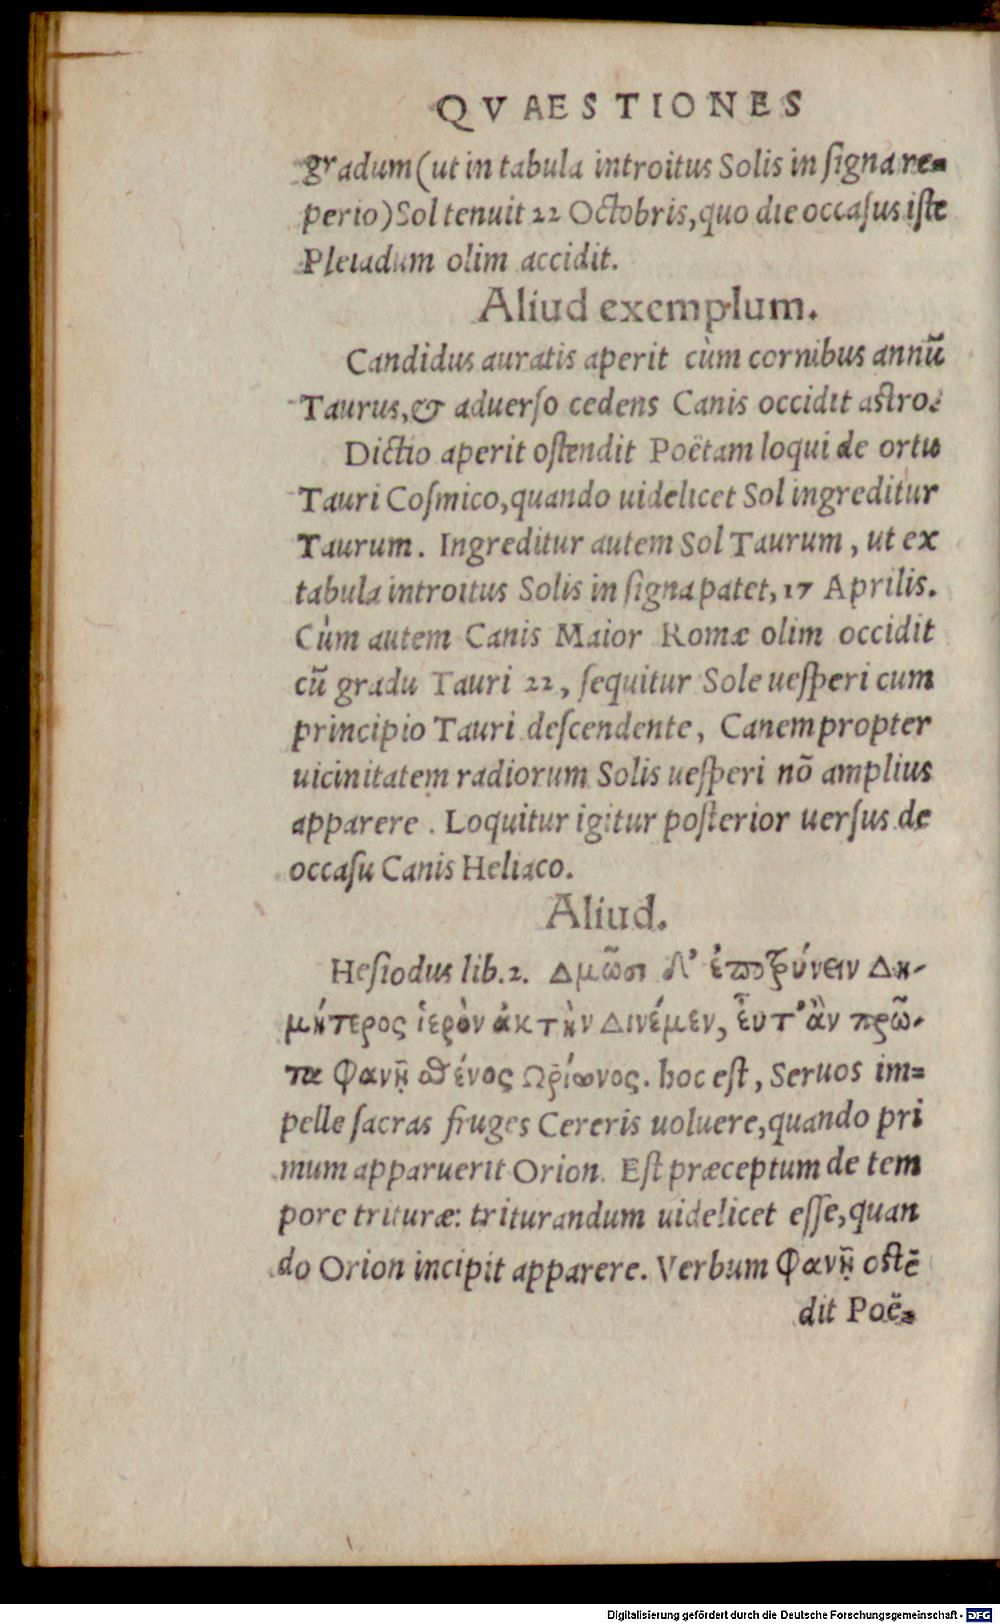 QVAESTIONES
gradum (ut in tabula introitus Solis in ſigna re=
perio) Sol tenuit 22 Octobris, quo die occaſus iſte
Pleiadum olim accidit.
Aliud exemplum.
Candidus auratis aperit cùm cornibus annũ
Taurus, & aduerſo cedens Canis occidit aſtro:
Dictio aperit oſtendit Poëtam loqui de ortu
Tauri Coſmico, quando uidelicet Sol ingreditur
Taurum. Ingreditur autem Sol Taurum, ut ex
tabula introitus Solis in ſigna patet, 17 Aprilis.
Cùm autem Canis Maior Romæ olim occidit
cũ gradu Tauri 22, ſequitur Sole ueſperi cum
principio Tauri deſcendente, Canem propter
uicinitatem radiorum Solis ueſperi nõ amplius
apparere. Loquitur igitur poſterior uerſus de
occaſu Canis Heliaco.
Aliud.
Heſiodus lib.2. Δμῶσι δ' ἐποξύνειν Δη-
μήτερος ἱερὸν ἀκτὴν Δινέμεν, εὖτ' ἂν πρῶ-
τα Φανῇ σθένος Ωρίωνος. hoc eſt, Seruos im=
pelle ſacras fruges Cereris uoluere, quando pri
mum apparuerit Orion. Eſt præceptum de tem
pore trituræ: triturandum uidelicet eſſe, quan
do Orion incipit apparere. Verbum Φανῇ oſtẽ
dit Poë=
Digitalisierung gefördert durch die Deutsche Forschungsgemeinschaft - DFG